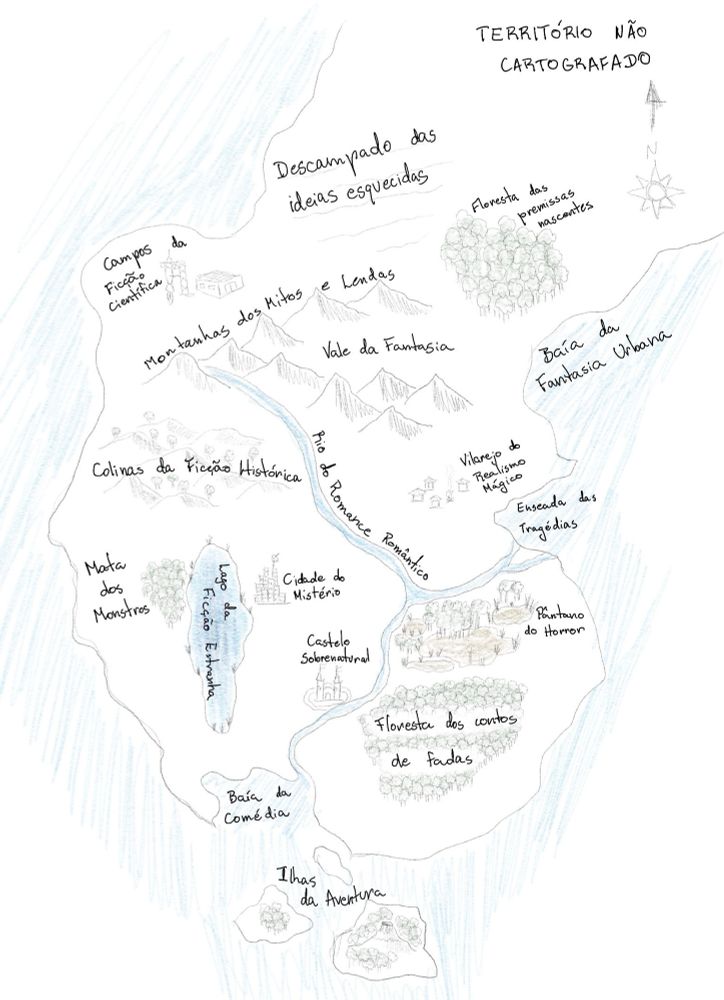 TERRITÓRIO NÃO
CARTOGRAFADO
N
Descampado das
ideias esquecidas
Floresta das
premissas
nascentes
Campos da
Ficção
Científica
Montanhas dos Mitos e Lendas
Vale da Fantasia
Baía da
Fantasia Urbana
Colinas da Ficção Histórica
Rio do Romance Romântico
Vilarejo do
Realismo
Mágico
Enseada das
Tragédias
Mata
dos
Monstros
Lago da
Ficção Estranha
Cidade do
Mistério
Pântano
do Horror
Castelo
Sobrenatural
Floresta dos contos
de fadas
Baía da
Comédia
Ilhas
da Aventura